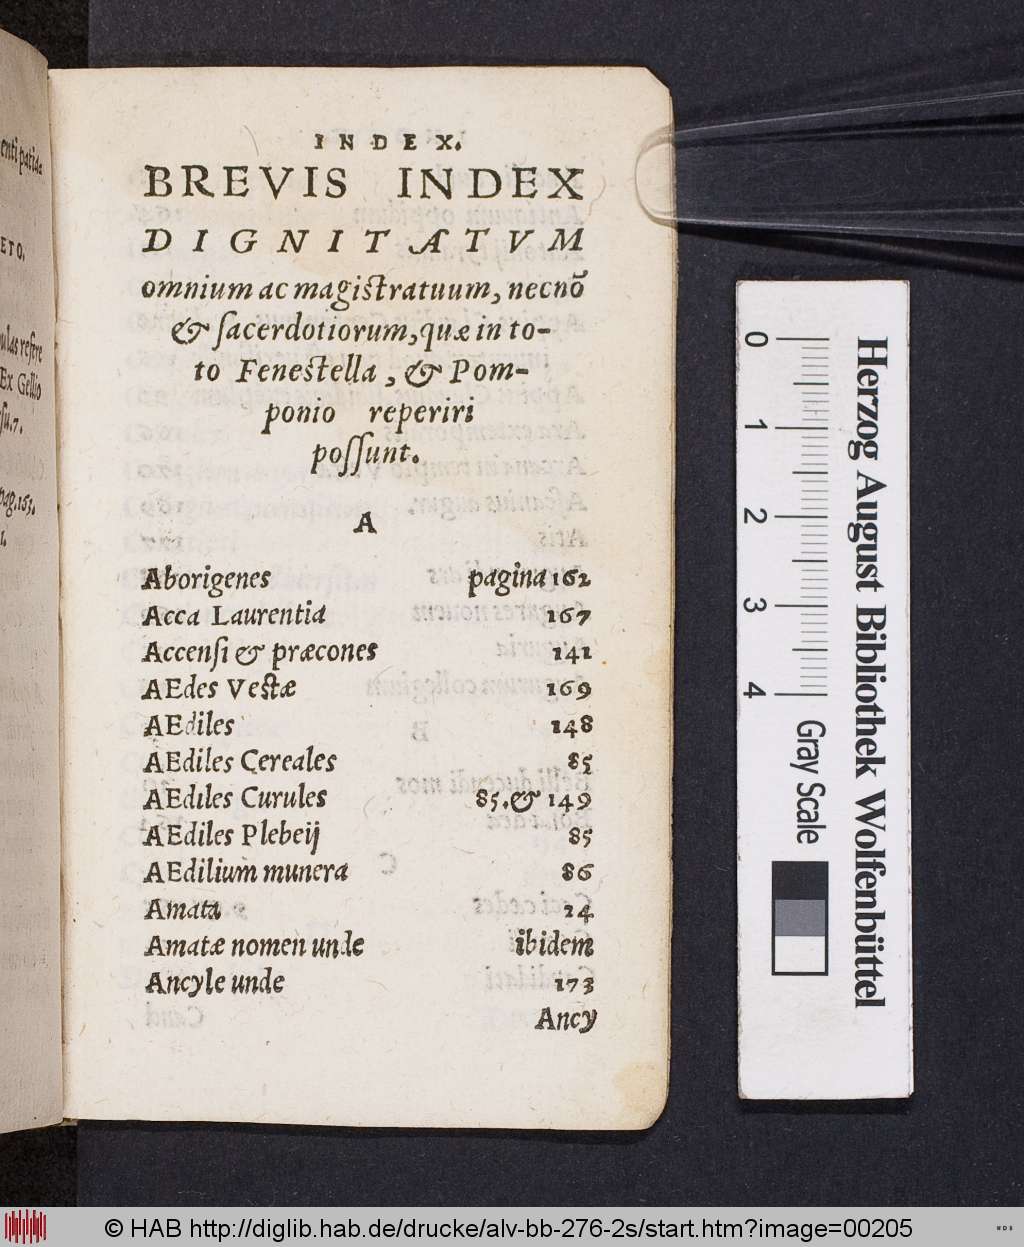 enti patida
ETO.
ulas restre
Ex Gellio
su.7.
pag.165.
1.
INDEX.
BREVIS INDEX
DIGNITATVM
omnium ac magistratuum, necnō
& ſacerdotiorum, quæ in to-
to Fenestella, & Pom-
ponio reperiri
poſſunt.
A
Aborigenes pagina 162
Acca Laurentia 167
Accenſi & præcones 141
AEdes Vestæ 169
AEdiles 148
AEdiles Cereales 85
AEdiles Curules 85. & 149
AEdiles Plebeij 85
AEdilium munera 86
Amata 24
Amatæ nomen unde ibidem
Ancyle unde 173
Ancy
0
1
2
3
4
Gray Scale
Herzog August Bibliothek Wolfenbüttel
© HAB http://diglib.hab.de/drucke/alv-bb-276-2s/start.htm?image=00205
WDB